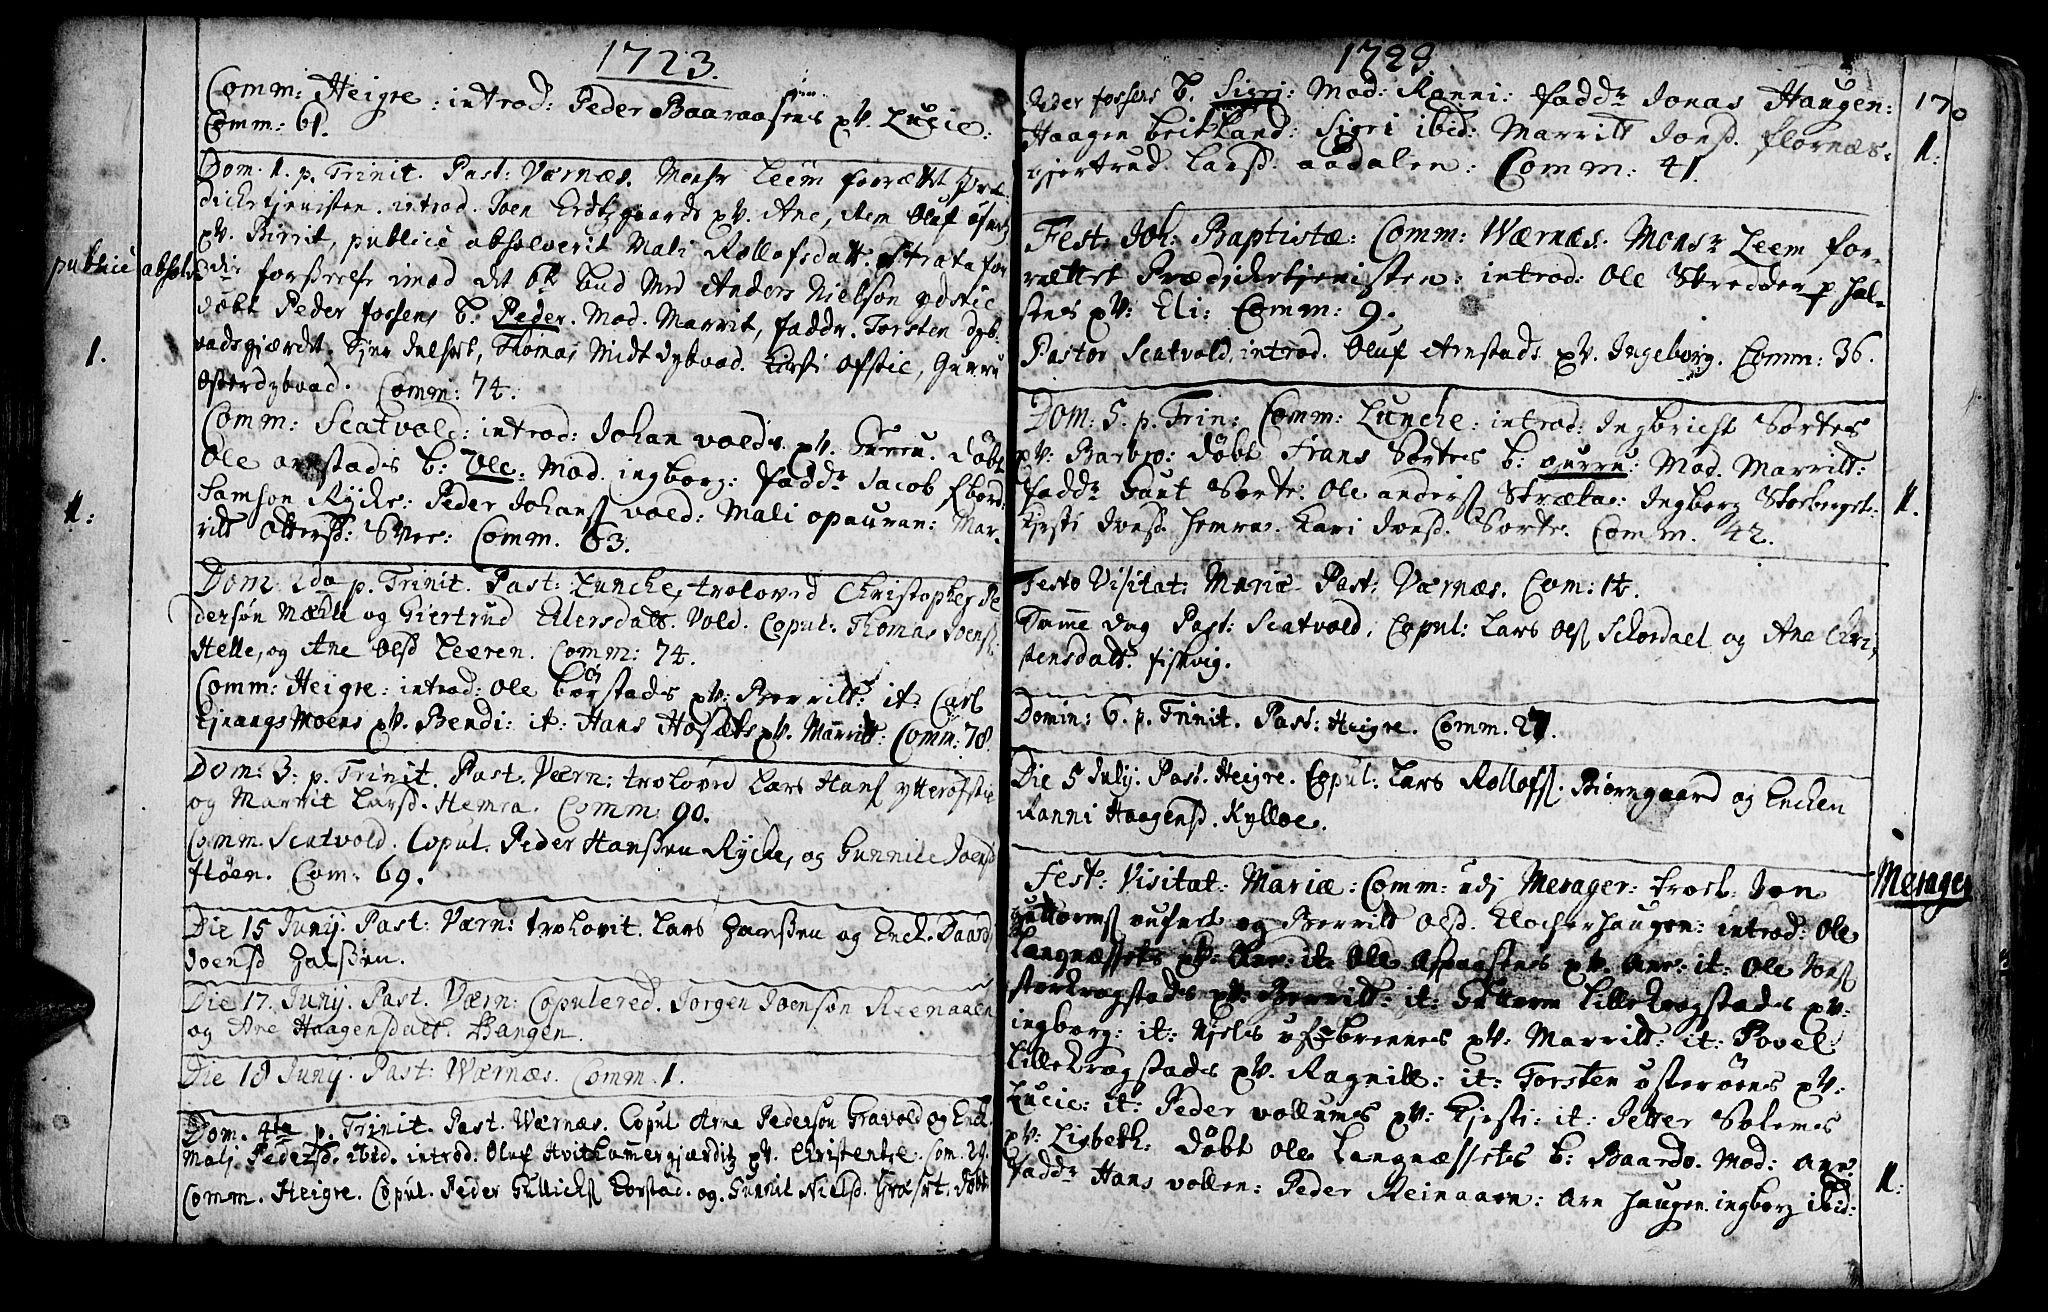 1723.
Comm: Heigre: introd: Peder Baaraasens pV. Lucie:
Comm: 61.
Dom. 1. p. Trinit. Past: Værnæs. Monsr Leem forrettet Præ-
diketjenisten. introd. Joen pV. Ane, Oluf
pV. Birrit, publicè absolverit Mali Rollofsdatt.
publicè absolv
forseelse imod det 6te bud med Anders Nielsøn ydstie
1.
døbt Peder fossens b. Peder. Mod. Marrit, faddr. Torsten Dyb-
vadsgjærdet. Thomas Midt dybvad. Kirsti Ofstie, Gurru
Østerdybvad. Comm: 74.
Comm: Scatvold: introd: Johan volds pV. Gurru. Døbt
Ole arnstads b: Ole: Mod. ingborg: faddr Jacob
1:
Samson Rycke: Peder Johanss vold: Mali opauran: Mar-
ritt Sver: Comm. 63.
Dom. 2da p. Trinit. Past: Luncke, troloved Christopher Pe
dersøn Mæhle og Giertrud Ellersdatt. Vold. Copul: Thomas Joens
Helle, og Ane Olsd Leeren. Comm: 74.
Comm: Heigre: introd: Ole borstads pV: Berritt: it: Carl
Moens pV. Bendi: it: Hans Hosets pV. Marritt: Comm: 78.
Dom: 3. p. Trinit. Past. Værn: troloved Lars Hans ytterofstie
og Marrit Larsd. Hemra. Comm: 90.
Comm. Scatvold. Copul. Peder Hanssen Rycke, og Gunnile Joensd
Høen. Com: 69.
Die 15 Junij. Past: Værn: trolovit. Lars Hanssen og Enck. Baard
Joensd Halssen.
Die 17. Junij. Past. Værn: Copulered. Jorgen Joensøn Reenaaen
og Ane Haagensdatt. Bangen.
Die 18 Junij. Past: Wærnæs. Comm. 1.
Dom. 4ta p. Trinit. Past. Wærnæs. Copul Arne Pedersøn Gravold og Enck.
Malj Pedersd. ibid. introd. Oluf Hvithamergjærditz pV. Christentze. Com. 29.
Comm. Heigre. Copul. Peder Gullicks Borstad. og Gunnil Nielsd. Døbt
1723.
Peder fossens b. Sigri: Mod: Ranni: faddr Jonas Haugen:
170
Haagen breitland: Sigri ibid: Marritt Jonsd. flornæs:
1:
gjertrud Larsd: aadalen: Comm: 41.
Fest: Joh: Baptistæ: Comm: Wærnæs. Monsr Leem for-
rettet Prædicketjenisten: introd: Ole Skredder p hal-
stes pV: Eli: Comm: 9.
Pastor Scatvold, introd. Oluf Arnstads pV. Ingeborg. Comm: 36.
Dom: 5. p. Trin: Comm: Luncke: introd: Ingbricht Sortes
pV: Barbro: døbt Frans Sortes b: gurru: Mod. Marritt:
faddr Gaut Sorte: Ole anderss Strætas: Ingborg Storberget:
1.
Kjersti Jonsd. Hemra: Kari Jonsd. Sorte. Comm. 42.
Festo Visitat: Mariæ Past: Værnæs. Com: 14.
Samme dag Past: Scatvold, Copul: Lars Ols Schordael og Ane Chri,
stensdatt. fiskvig.
Domin: 6. p. Trinit. Past: Heigre. Comm. 27.
Die 5 Julij. Past: Heigre. Copul: Lars Rollofs. Biørngaard og Encken
Ranni Haagensd. Kylloe.
Fest: Visitat: Mariæ: Comm: udj Merager: trol: Jon
Merager
Guttorms og Berritt Olsd. Klockerhaugen: introd: Ole
Langnæssets pV: Ane: it: Ole Aspaasens pV. Ane: it: Ole Jons
storkrogstads pV: Berritt: it: Guttorm Lillekrogstads pV:
ingborg: it: Njels brennes pV: Marritt: it: Povel:
Lillekrogstads pV. Ragnill: it: Torsten østerøens pV:
Lucie: it: Peder vollumes pV: Kjersti: it: Petter Solemes
pV: Lisbeth: Døbt Ole Langnæssets b: Baardo. Mod: Ane:
faddr Hans vollen: Peder Reinaaen: Arn haugen ingborg ibid:
1: